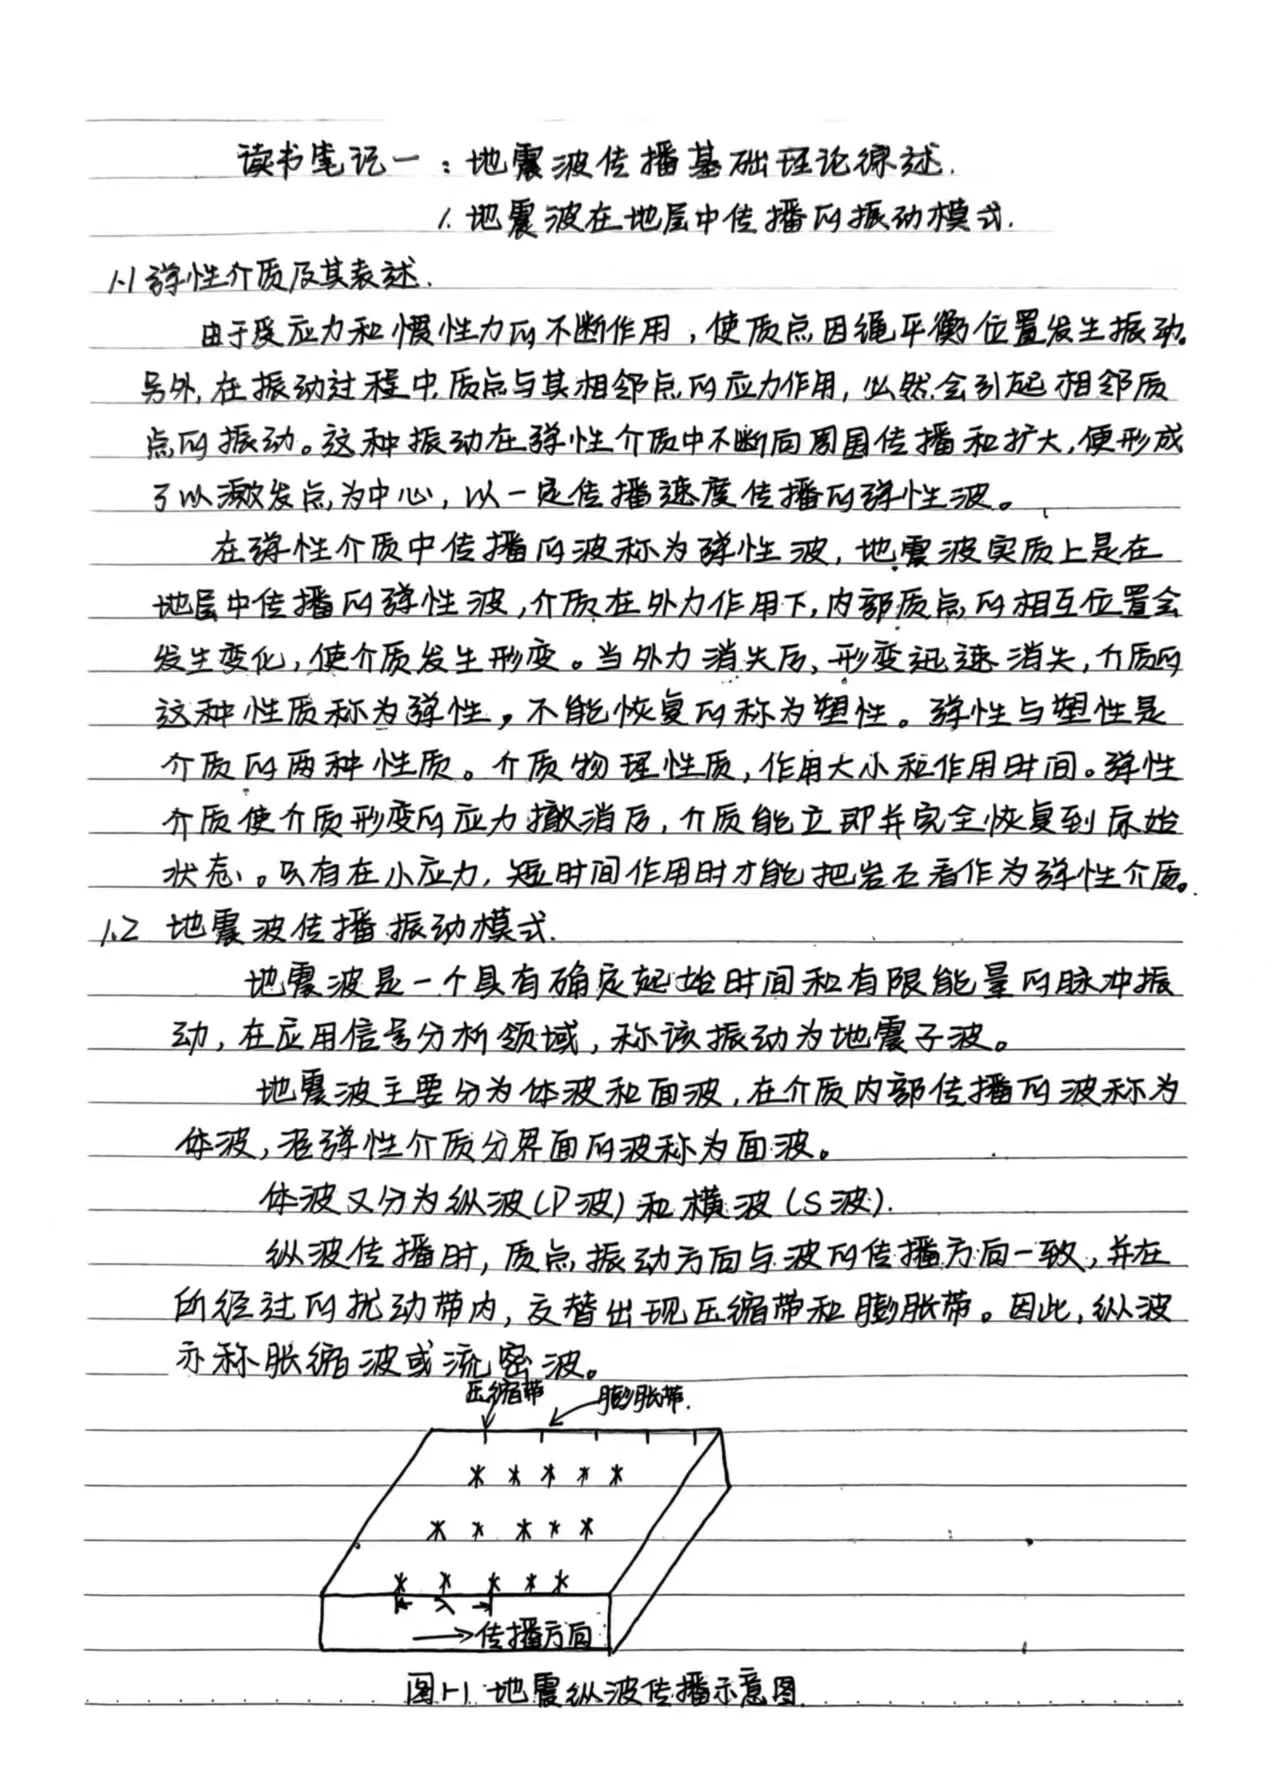 读书笔记一：地震波传播基础理论综述.
1.地震波在地层中传播的振动模式.
1.1弹性介质及其表述.
由于受应力和惯性力的不断作用，使质点因绳平衡位置发生振动。
另外，在振动过程中，质点与其相邻点的应力作用，必然会引起相邻质
点的振动。这种振动在弹性介质中不断向周围传播和扩大，便形成
了以激发点为中心，以一定传播速度传播的弹性波。
在弹性介质中传播的波称为弹性波，地震波实质上是在
地层中传播的弹性波，介质在外力作用下，内部质点的相互位置会
发生变化，使介质发生形变。当外力消失后，形变迅速消失，介质的
这种性质称为弹性，不能恢复的称为塑性。弹性与塑性是
介质的两种性质。介质物理性质，作用大小和作用时间。弹性
介质使介质形变的应力撤消后，介质能立即并完全恢复到原始
状态。只有在小应力，短时间作用时才能把岩石看作为弹性介质。
1.2 地震波传播振动模式.
地震波是一个具有确定起始时间和有限能量的脉冲振
动，在应用信号分析领域，称该振动为地震子波。
地震波主要分为体波和面波，在介质内部传播的波称为
体波，沿弹性介质分界面的波称为面波。
体波又分为纵波(P波)和横波(S波).
纵波传播时，质点振动方向与波的传播方向一致，并在
所经过的扰动带内，交替出现压缩带和膨胀带。因此，纵波
亦称胀缩波或流密波。
压缩带 膨胀带.
→传播方向
图1-1 地震纵波传播示意图.